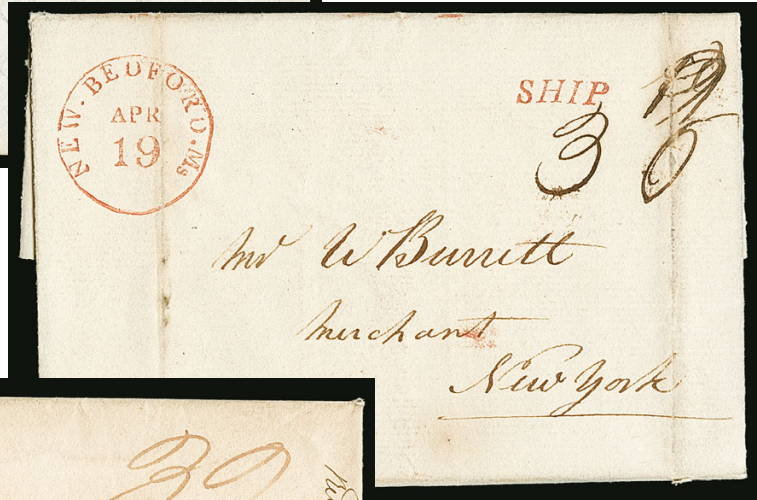 NEW. BEDFORD. Ms
APR
19
SHIP
3
Mr W Burrett
Merchant
New York
32